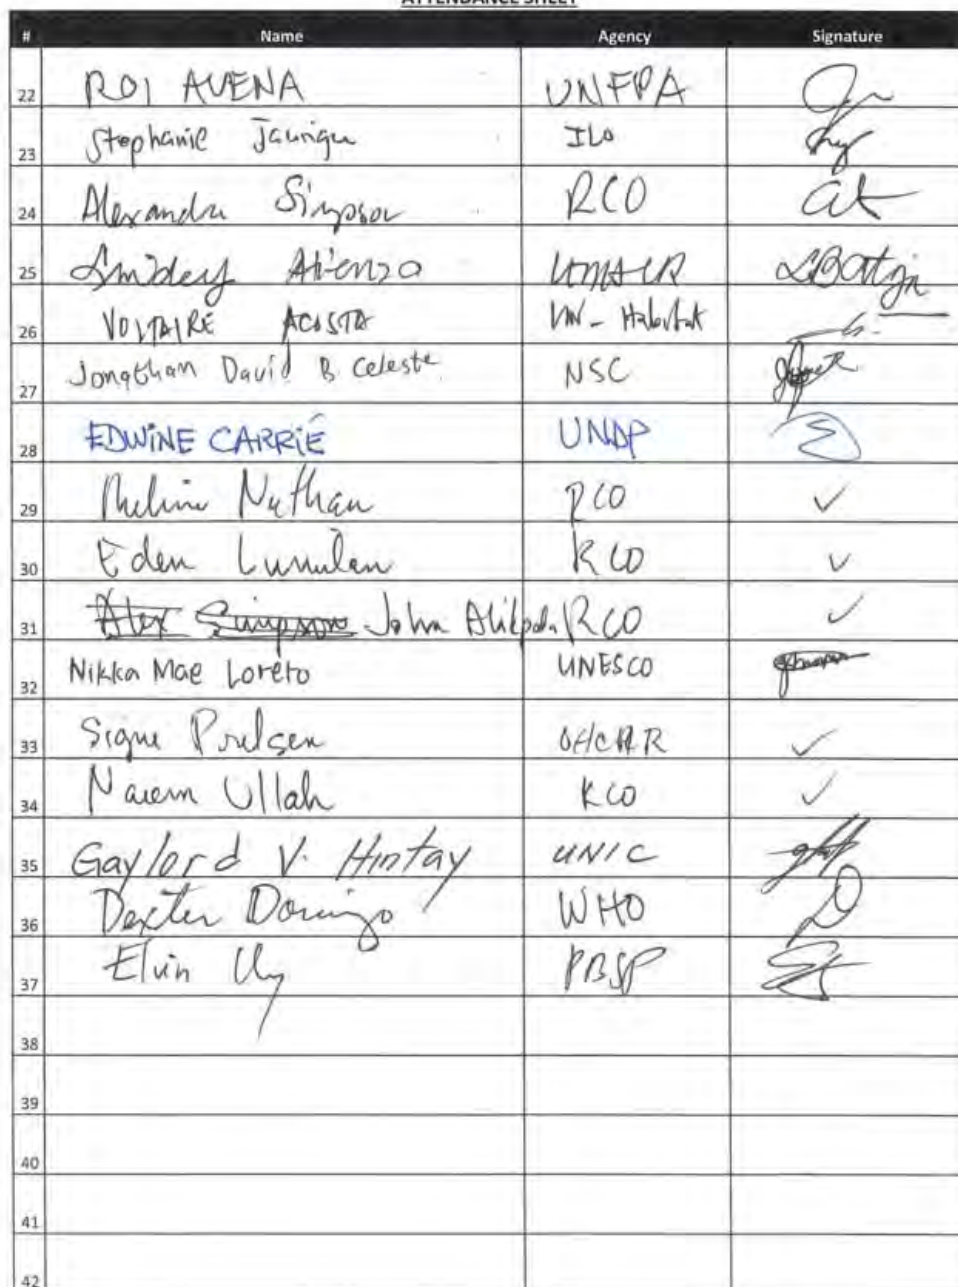 ATTENDANCE SHEET
# Name Agency Signature
22 ROI AVENA UNFPA
23 Stephanie Jaurigue ILO
24 Alexandra Simpson RCO
25 Atienza
26 VOLTAIRE ACOSTA UN-Habitat
27 Jonathan David B Celeste NSC
28 EDWINE CARRIÉ UNDP
29 Nathan RCO
30 Eden Lumilan RCO
31 Alex Simpson John RCO
32 Nikka Mae Loreto UNESCO
33 Signe Poulsen OHCHR
34 Ullah RCO
35 Gaylord V. Hintay UNIC
36 Dexter Domingo WHO
37 Elvin Uy PBSP
38
39
40
41
42